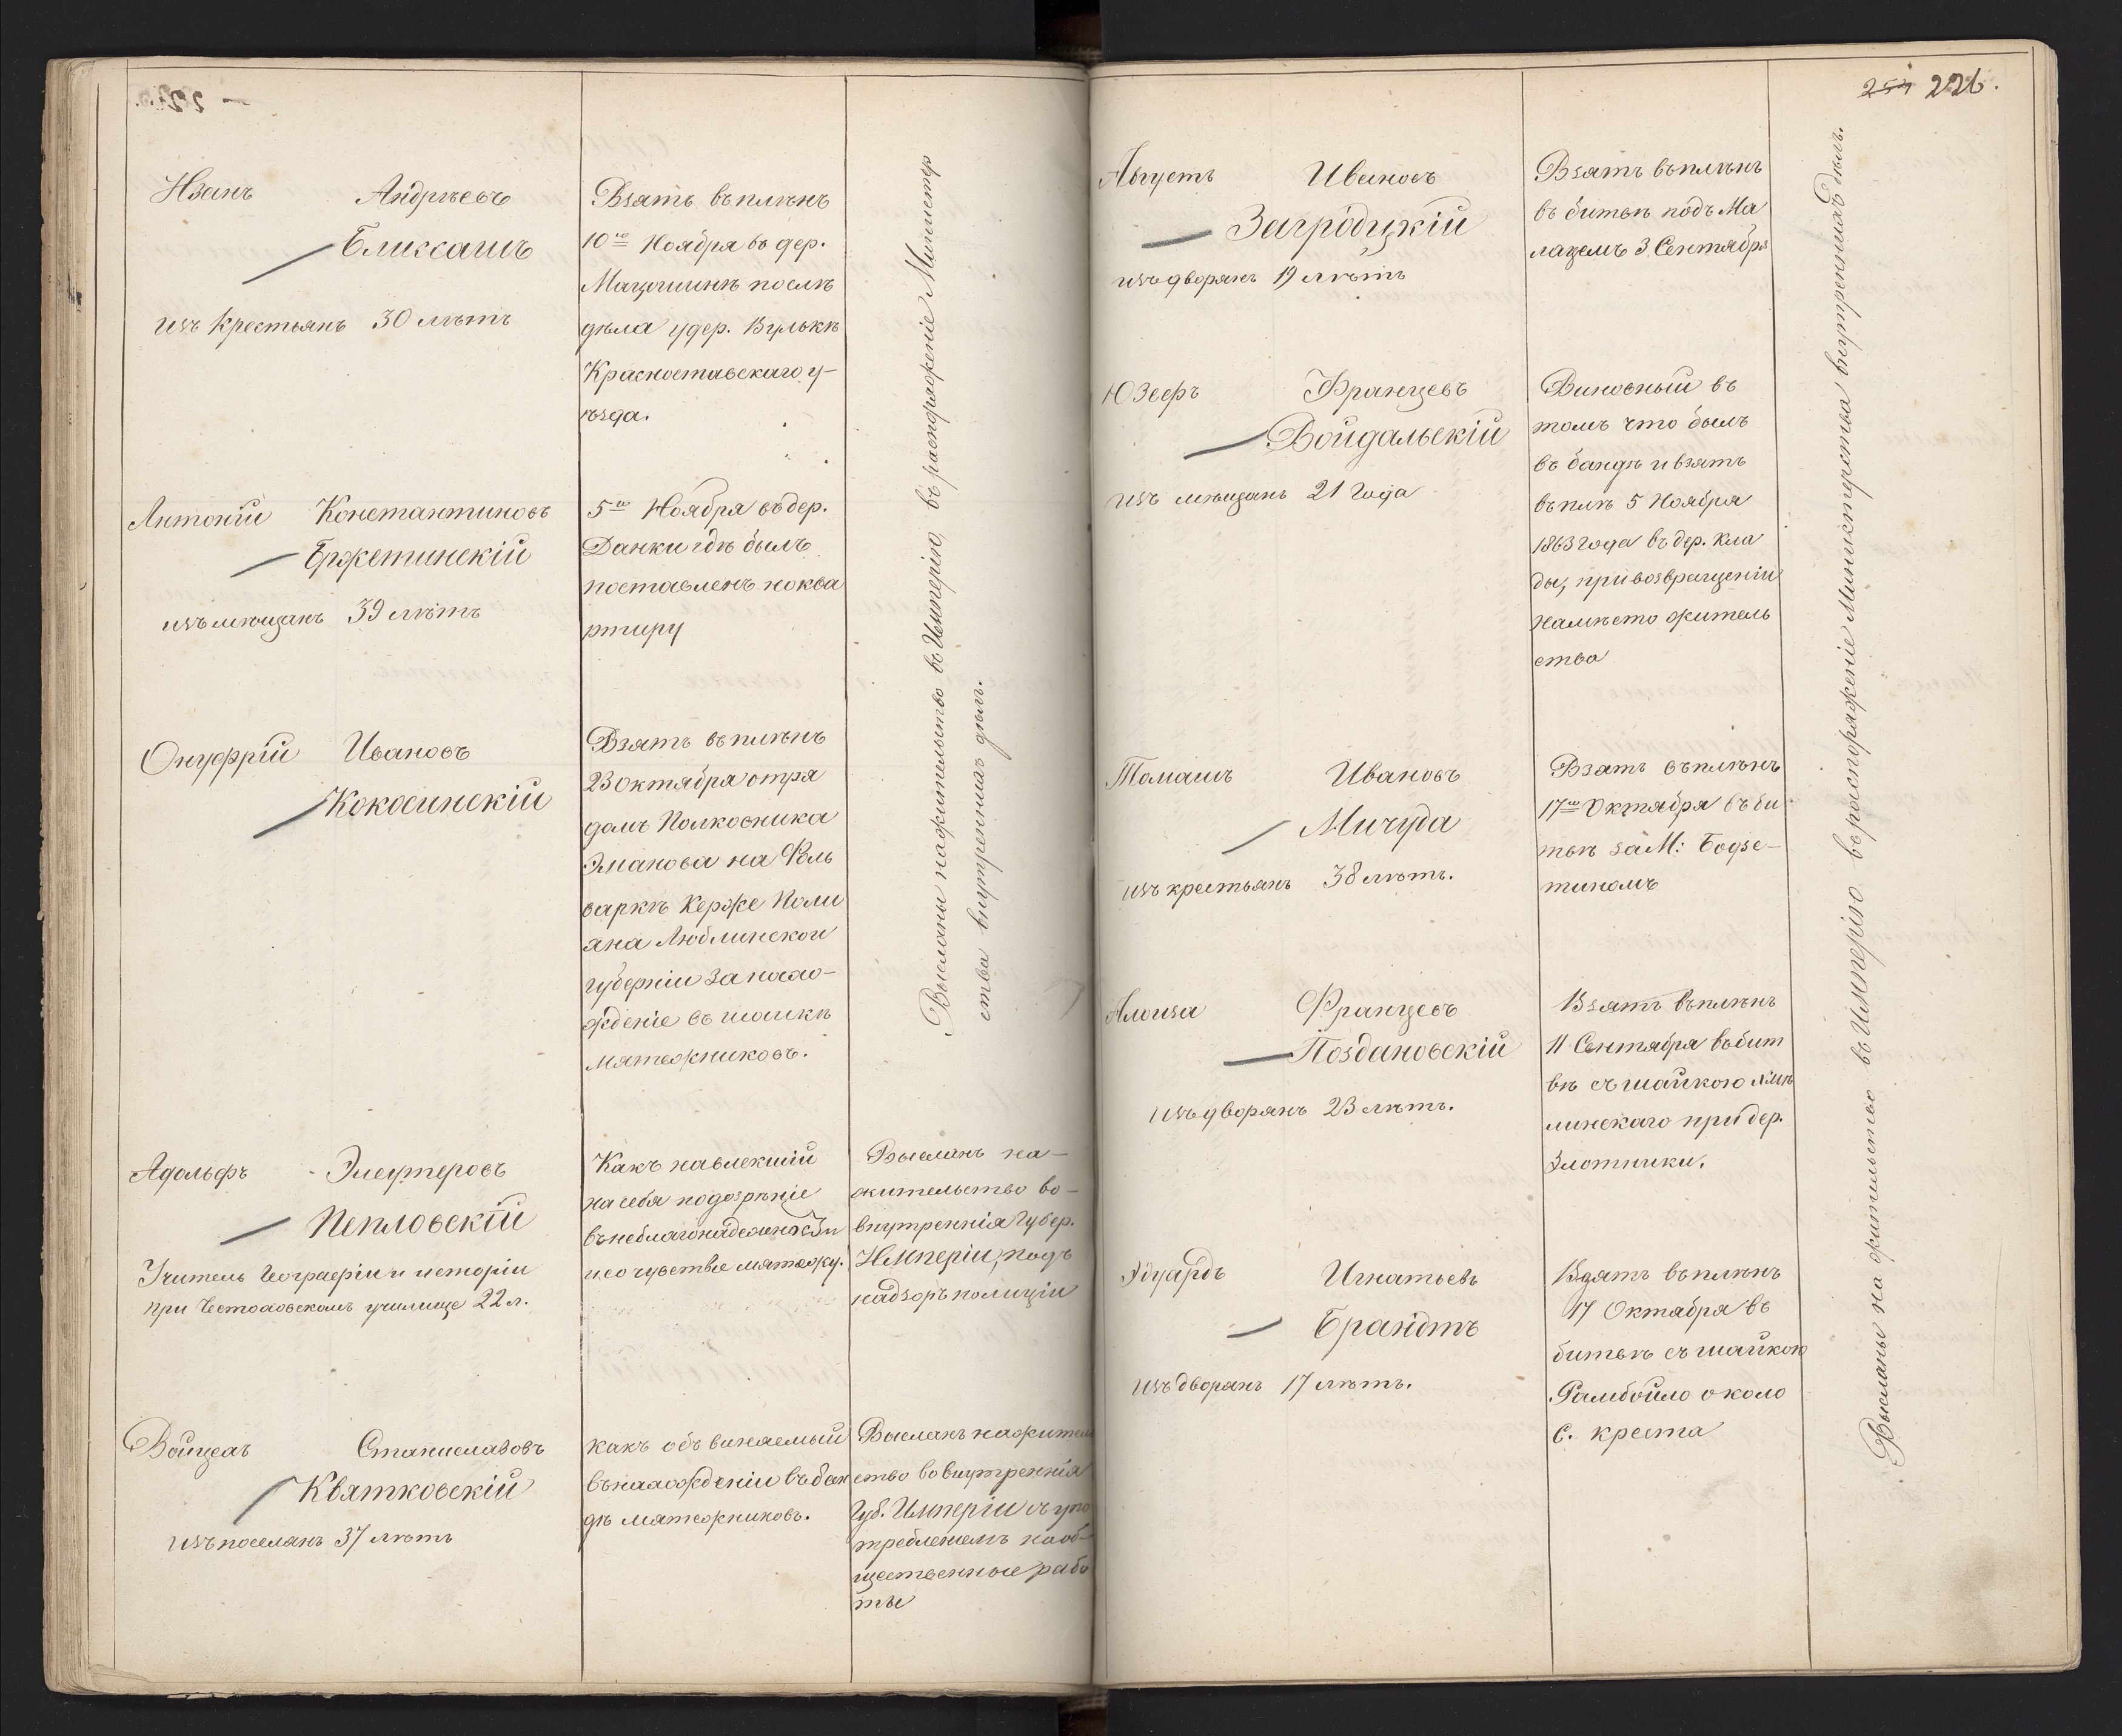 Иванъ Андрѣевъ
Бликсашъ
изъ крестьянъ 30 лѣтъ
Взятъ въ плѣнъ
10го Ноября въ дер.
Мацошинѣ послѣ
дѣла у дер. Вулькѣ
Красноставскаго у-
ѣзда.
Антоній Константиновъ
Бржетинскій
изъ мѣщанъ 39 лѣтъ
5го Ноября въ дер.
Данки гдѣ былъ
поставленъ на ква
ртиру
Онуфрій Ивановъ
Кокосинскій
Взятъ въ плѣнъ
23 октября отря
домъ Полковника
Эманова на Фоль
варкѣ Керже Поли
яна Люблинской
губерніи за нахо-
жденіе въ шайкѣ
мятежниковъ.
Высланы на жительство въ Имперію, въ распоряженіе Министер
ства внутреннихъ дѣлъ.
Адольфъ Элеутеровъ
Пепловскій
Учитель Географіи и исторіи
при училище 22 л.
Какъ навлекшій
на себя подозрѣніе
въ неблагонадежности
и сочувствіе мятежу.
Высланъ на-
жительство во-
внутреннія Губер.
Имперіи, подъ
надзоръ полиціи
Войцехъ Станиславовъ
Квятковскій
изъ поселянъ 37 лѣтъ
какъ обвиняемый
въ нахожденіи въ бан
дѣ мятежниковъ.
Высланъ на жител
ство во внутреннія
Губ. Имперіи съ упо
требленіемъ на об-
щественные рабо
ты
254 226.
Августъ Ивановъ
Загродцкій
изъ дворянъ 19 лѣтъ
Взятъ въ плѣнъ
въ битвѣ подъ Ма
лацемъ 3 Сентября
Юзефъ Францевъ
Войдальскій
изъ мѣщанъ 21 года
Виновный въ
томъ что былъ
въ бандѣ и взятъ
въ плѣ 5 Ноября
1863 года въ дер. Кла
ды, при возвращеніи
на мѣсто житель
ства
Томашъ Ивановъ
Мичуда
изъ крестьянъ 38 лѣтъ.
Взятъ въ плѣнъ
17го Октября въ би
твѣ за М: Бодзе-
тиномъ
Алоиза Францевъ
Поздановскій
изъ дворянъ 23 лѣтъ.
Взятъ въ плѣнъ
11 Сентября въ бит
вѣ съ шайкою Хмѣ
линскаго при дер.
Злотники.
Эдуардъ Игнатьевъ
Брандтъ
изъ дворянъ 17 лѣтъ.
Взятъ въ плѣнъ
17 Октября въ
битвѣ съ шайкою
Рамбойло около
С. креста
Высланы на жительство въ Имперію въ распоряженіе Министерства внутреннихъ дѣлъ.